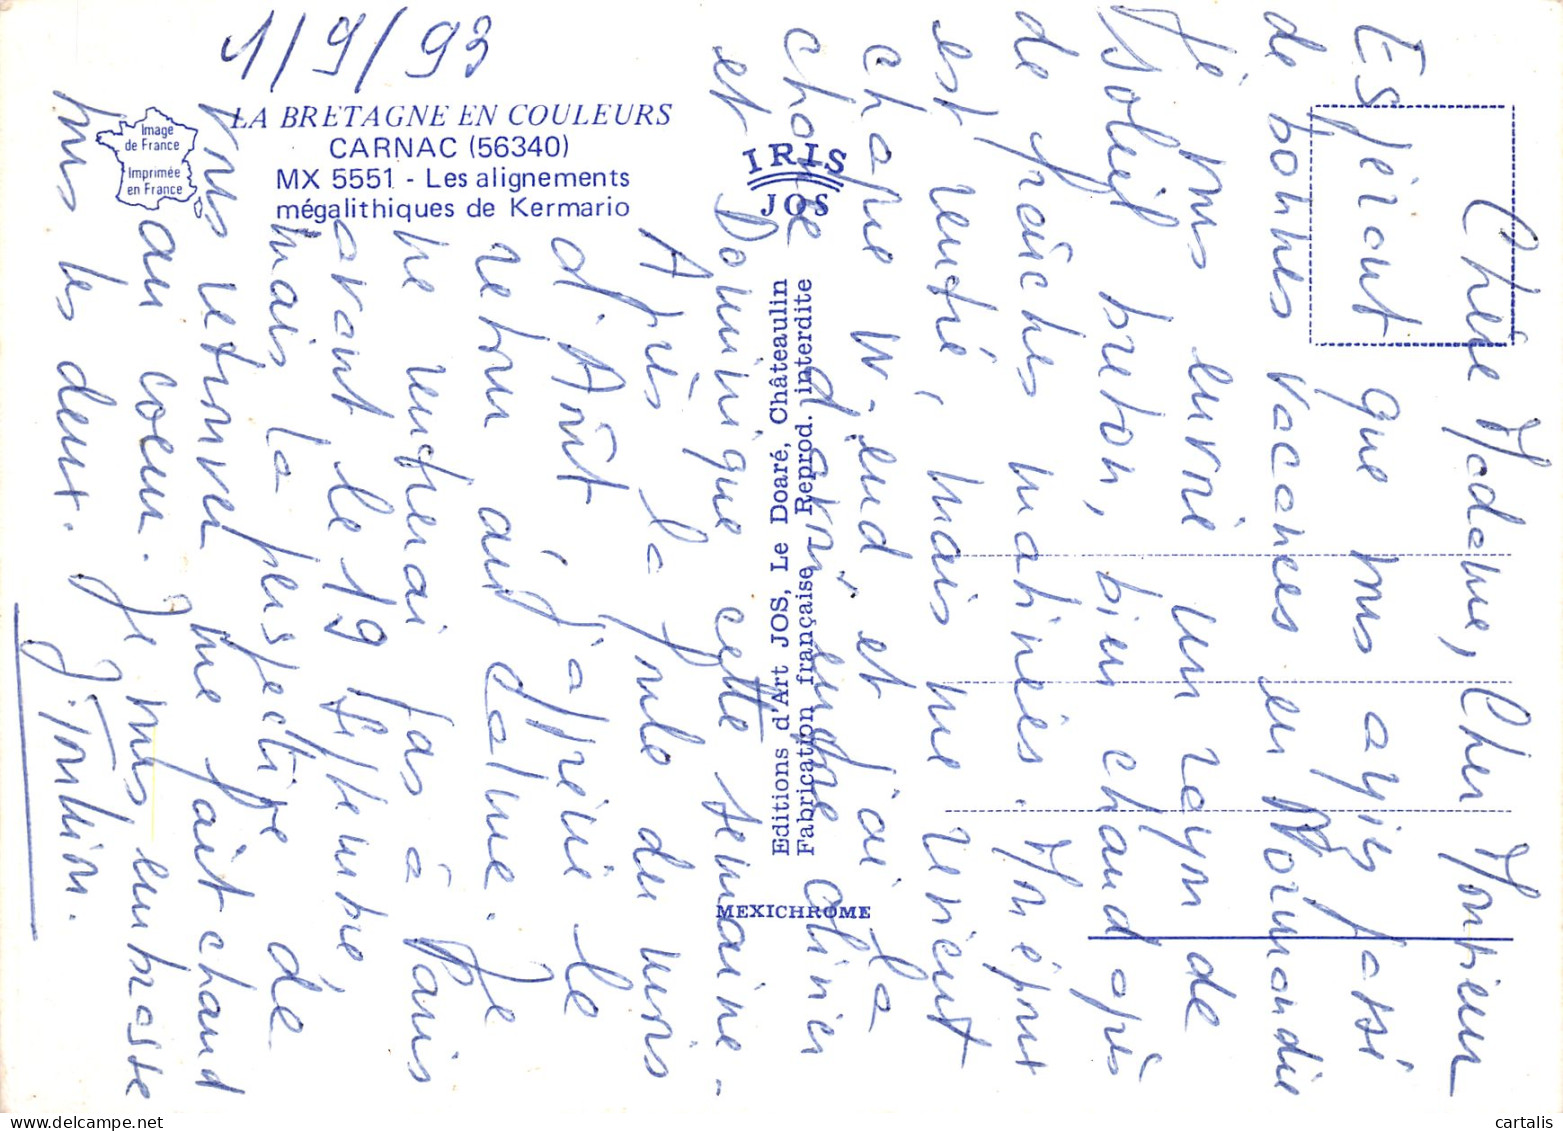 1/9/93
LA BRETAGNE EN COULEURS
CARNAC (56340)
MX 5551 - Les alignements
mégalithiques de Kermario
Image
de France
Imprimée
en France
IRIS
JOS
Editions d'Art JOS, Le Doaré, Châteaulin
Fabrication française - Reprod. interdite
MEXICHROME
Chère Madame, Cher Monsieur
Espérant que vous ayez passé
de bonnes vacances en Normandie
Je vous envoie un rayon de
soleil breton, bien chaud après
de fraîches matinées. Mon époux
est rentré, mais me revient
chaque W-end et j'ai la
chance d'avoir André Olivier
et Dominique cette semaine.
Après la foule du mois
d'Août, j'apprécie le
retour au calme. Je
ne rentrerai pas à Paris
avant le 19 Septembre
mais la perspective de
vous retrouver me fait chaud
au coeur. Je vous embrasse
tous les deux.
cartalis